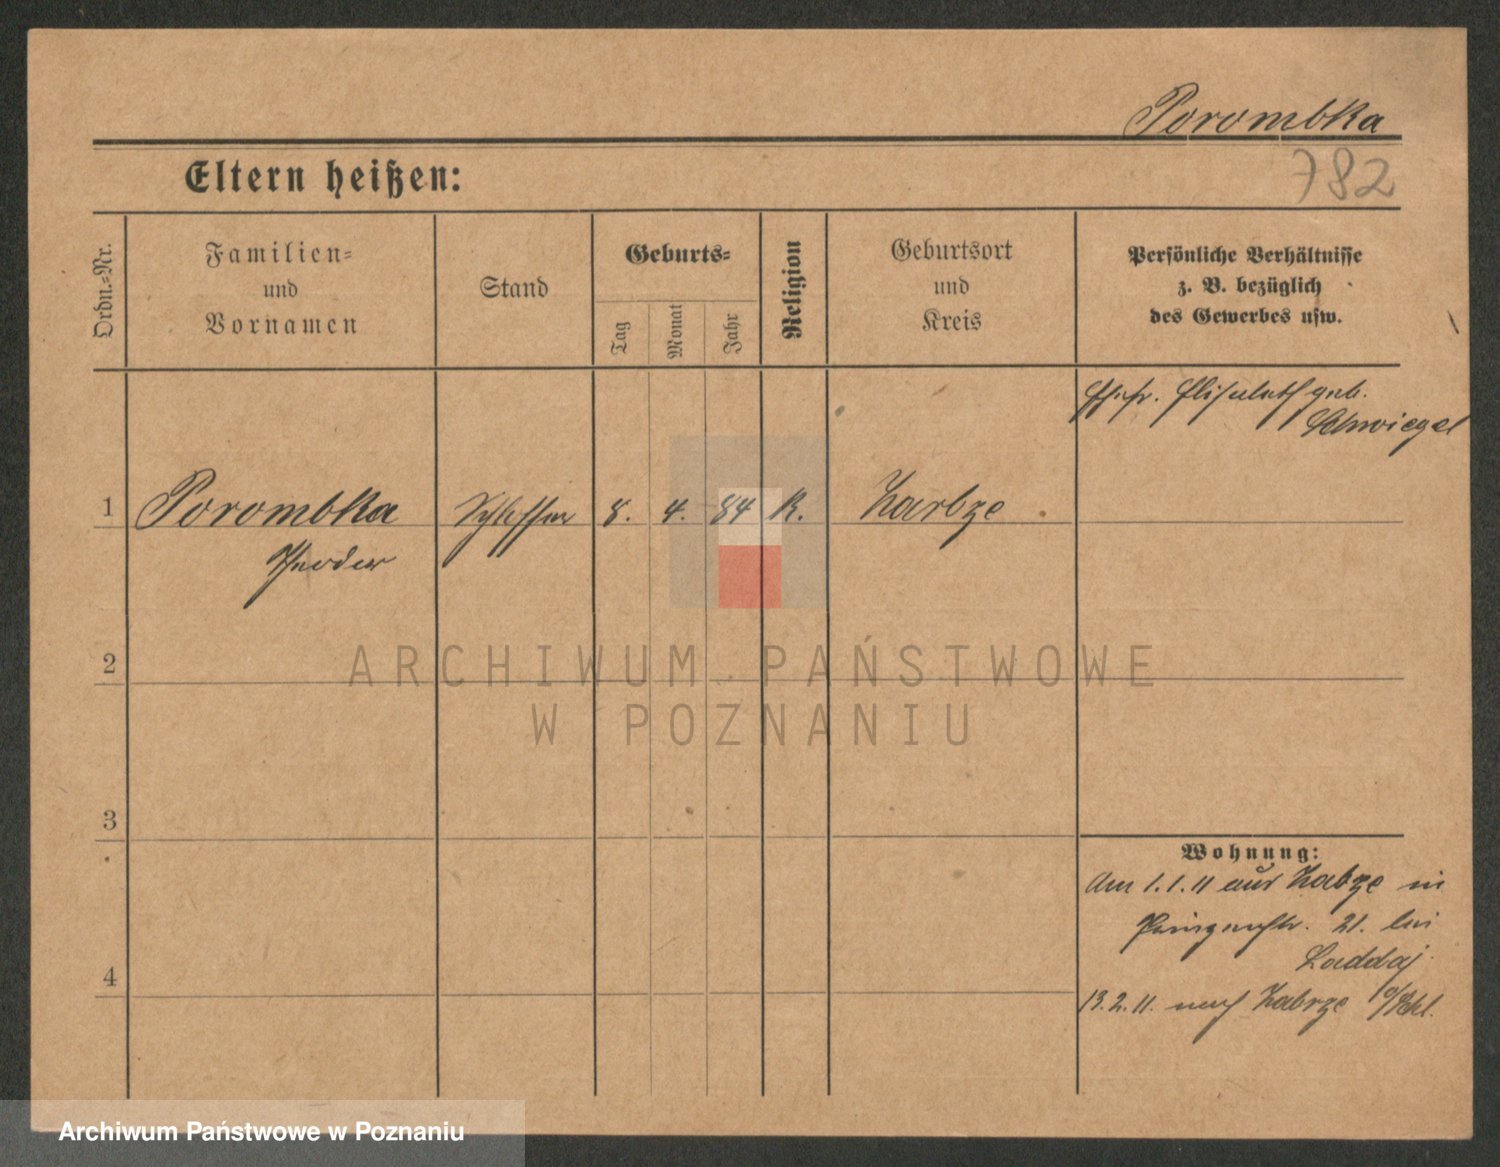 Porombka
782
Eltern heißen:
Ordn.-Nr.
Familien-
und
Vornamen
Stand
Geburts-
Tag
Monat
Jahr
Religion
Geburtsort
und
Kreis
Persönliche Verhältnisse
z. B. bezüglich
des Gewerbes usw.
Ehefr. Elisabeth geb.
Schwiegel
1 Porombka Schlosser 8. 4. 84 K. Zarbze
Theodor
2
3
4
Wohnung:
Am 1.1.11 aus Zabze in
21. bei
Laddaj
13.2.11. nach Zabrze O/Schl.
ARCHIWUM PAŃSTWOWE
W POZNANIU
Archiwum Państwowe w Poznaniu